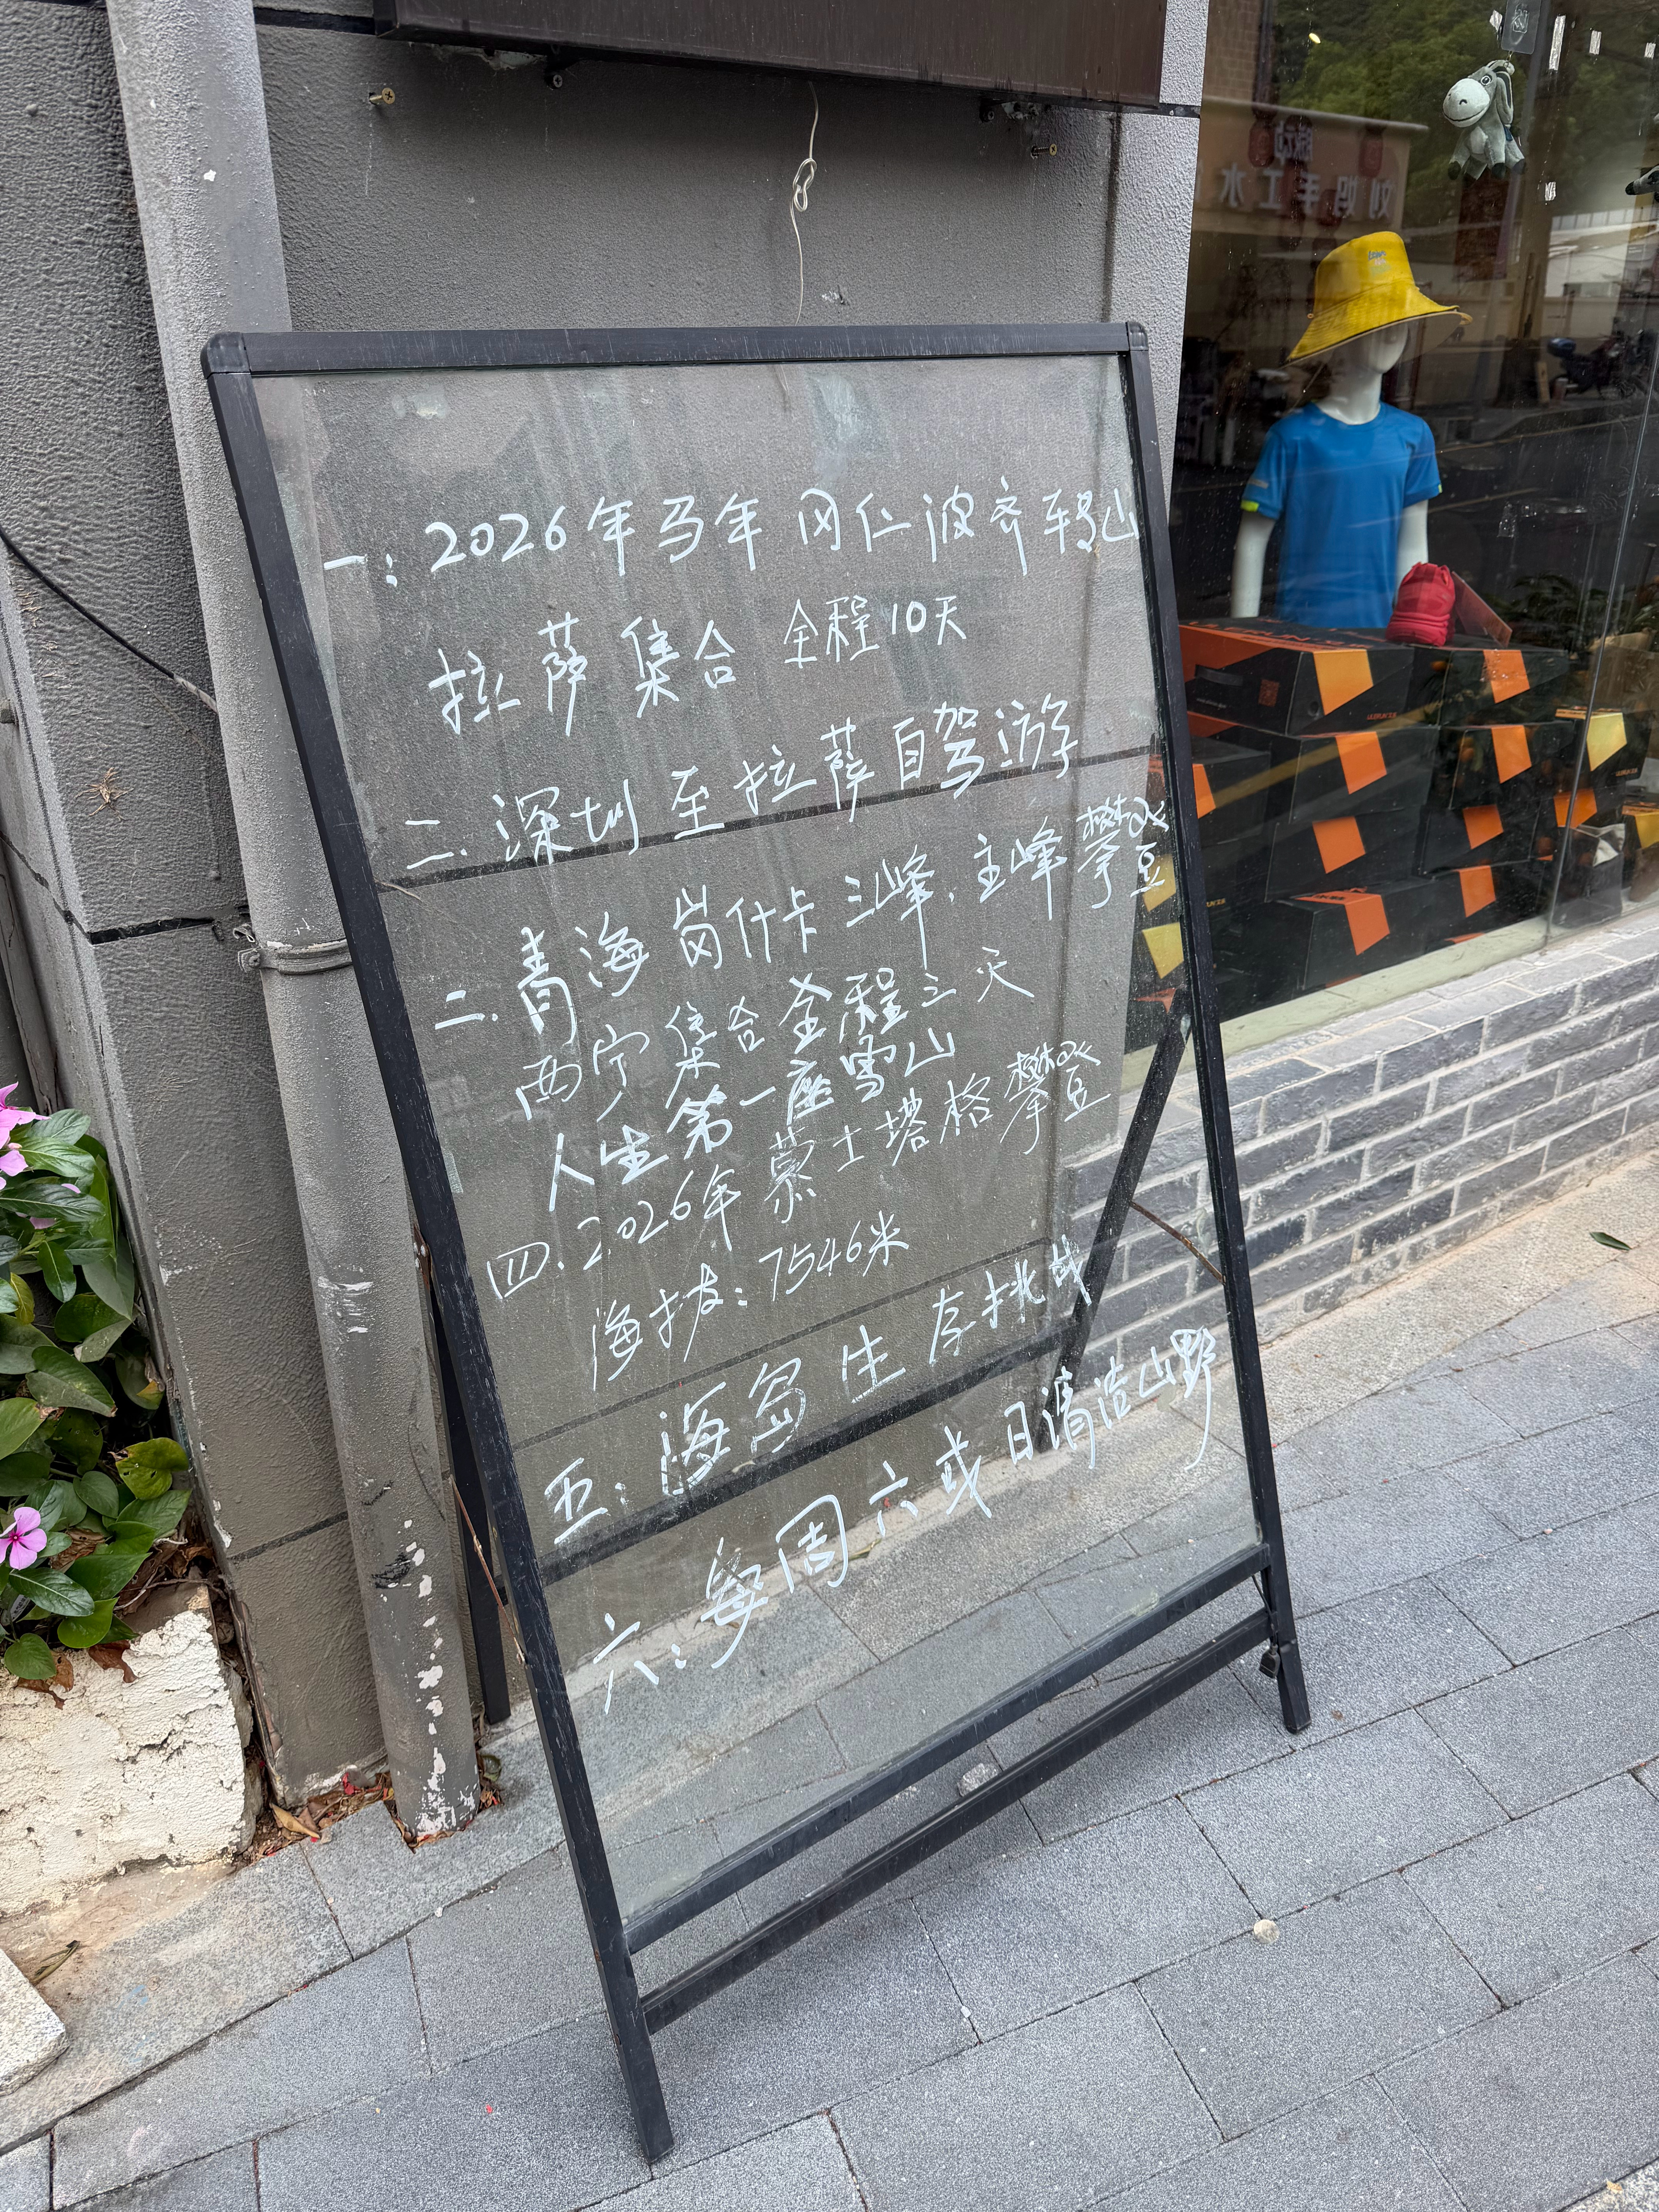 一:2026年马年 冈仁波齐转山
拉萨集合 全程10天
二.深圳至拉萨自驾游
二.青海岗什卡三峰,主峰攀登
西宁集合全程三天
人生第一座雪山
四.2026年慕士塔格攀登
海拔:7546米
五:海岛生存挑战
六:每周六或日清洁山野
刘妈手工水